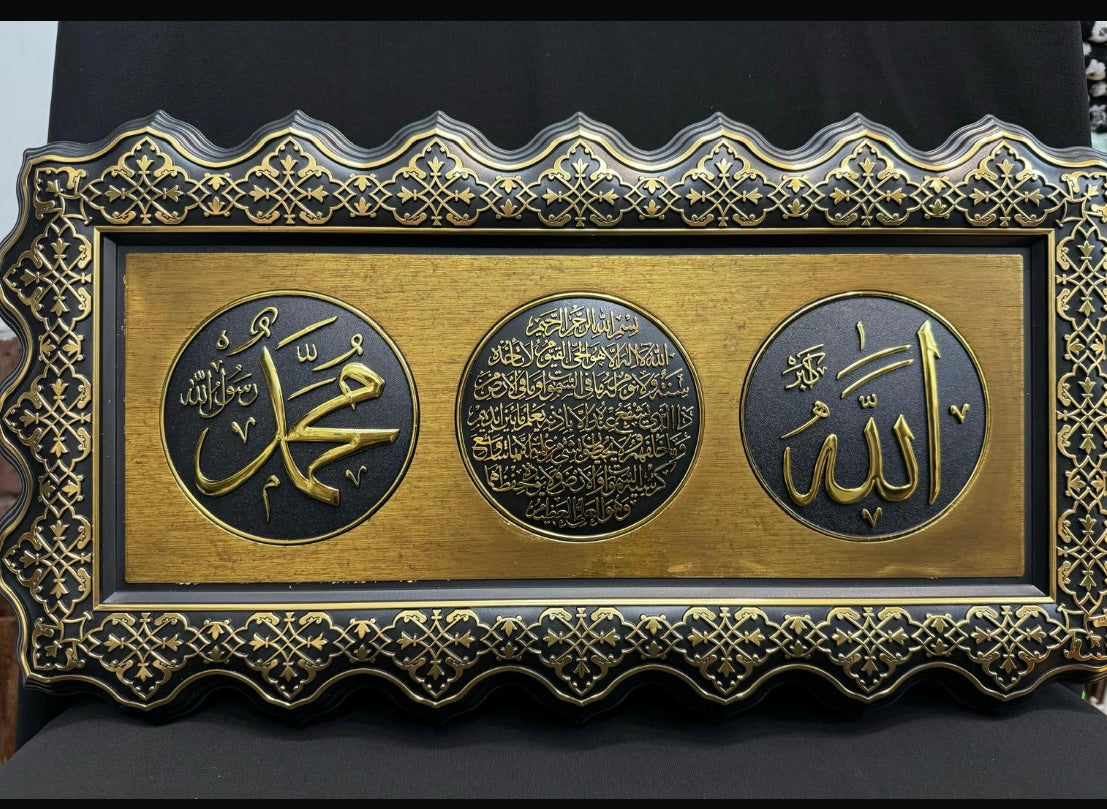 الله
اكبر
بسم الله الرحمن الرحيم
الله لا اله الا هو الحي القيوم لا تأخذه
سنة ولا نوم له ما في السموات وما في الارض من
ذا الذي يشفع عنده الا باذنه يعلم ما بين ايديهم
وما خلفهم ولا يحيطون بشيء من علمه الا بما شاء وسع
كرسيه السموات والارض ولا يؤده حفظهما
وهو العلي العظيم
محمد
رسول الله